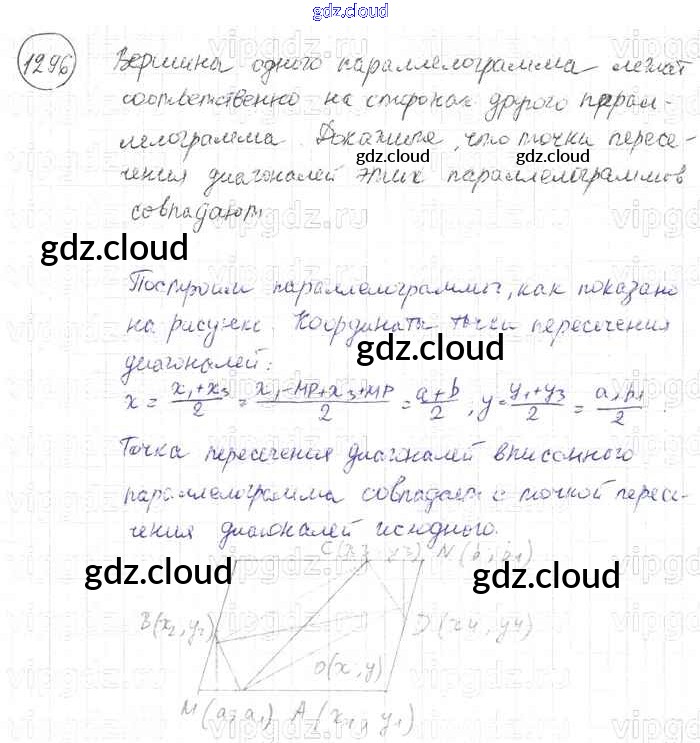 gdz.cloud
1296 Вершины одного параллелограмма лежат
соответственно на сторонах другого парал-
лелограмма. Докажите, что точки пересе-
gdz.cloud gdz.cloud
чения диагоналей этих параллелограммов
совпадают.
gdz.cloud
Построим параллелограммы, как показано
на рисунке. Координаты точки пересечения
gdz.cloud
диагоналей:
x = (x₁+x₃)/2 = (x₁-MP+x₃+MP)/2 = (a+b)/2, y = (y₁+y₃)/2 = (a₁b₁)/2.
Точка пересечения диагоналей вписанного
параллелограмма совпадает с точкой пересе-
чения диагоналей исходного.
C(x3, y3) N(b, b1)
gdz.cloud gdz.cloud
B(x₂, y₂) D(x4, y4)
O(x, y)
M(a, a₁) A(x₁, y₁)
gdz.cloud